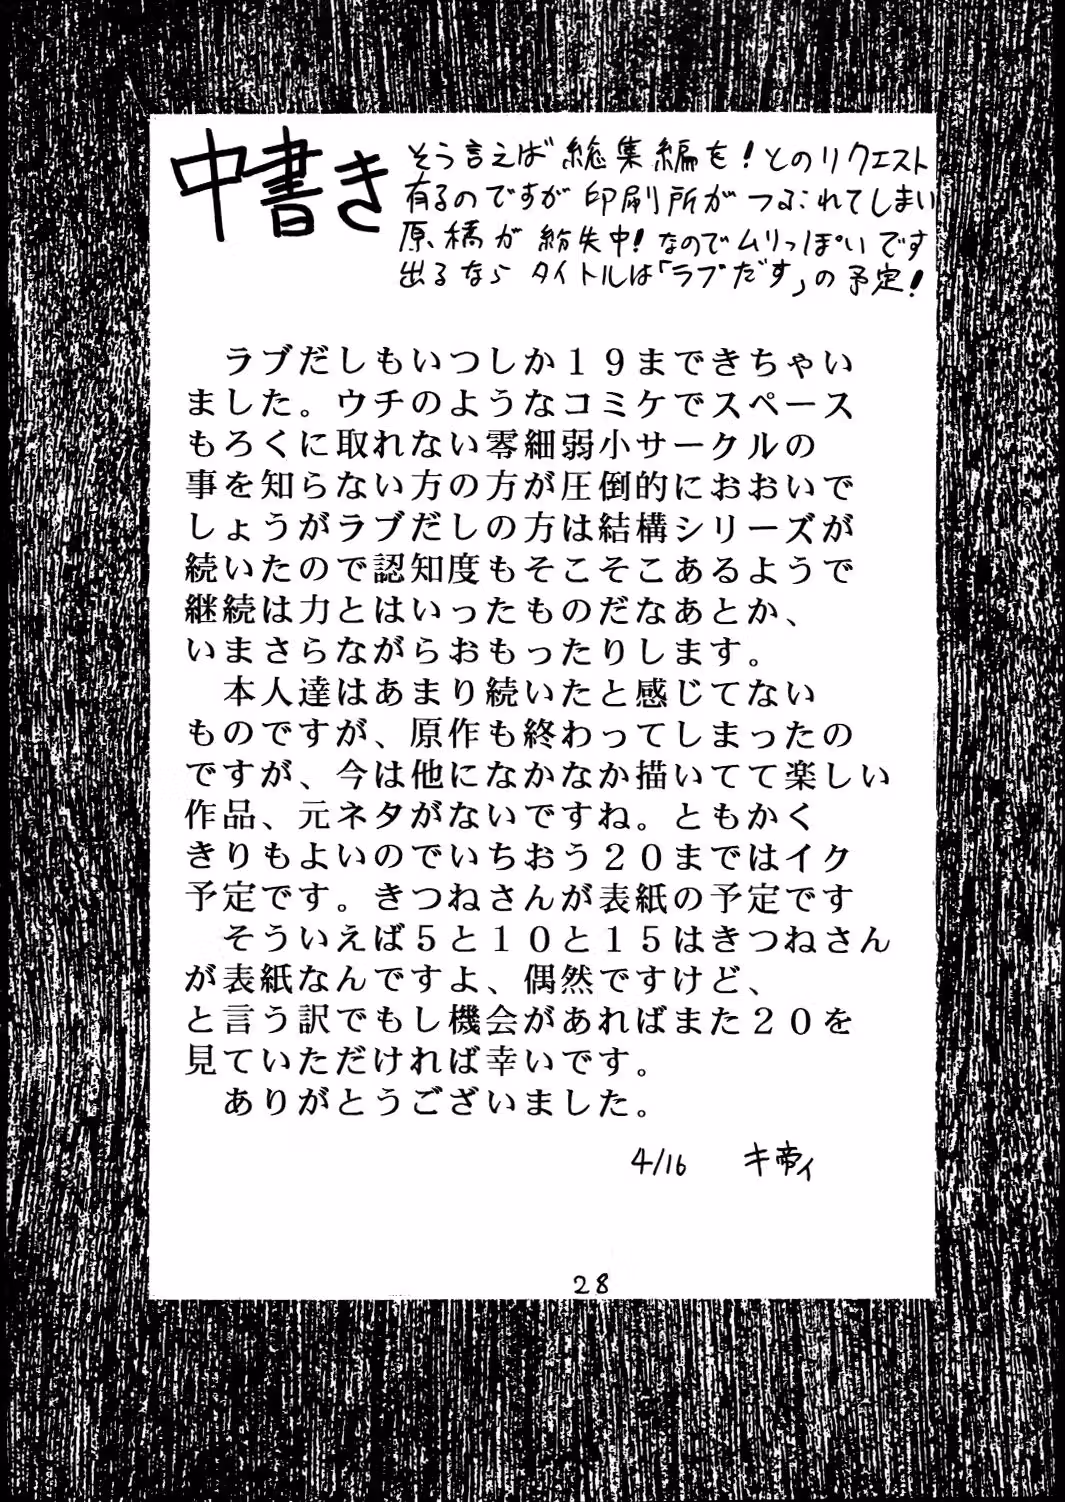 中書き
そう言えば総集編を！とのリクエスト
有るのですが印刷所がつぶれてしまい
原稿が紛失中！なのでムリっぽいです
出るなら タイトルは「ラブだす」の予定！
ラブだしもいつしか１９まできちゃい
ました。ウチのようなコミケでスペース
もろくに取れない零細弱小サークルの
事を知らない方の方が圧倒的におおいで
しょうがラブだしの方は結構シリーズが
続いたので認知度もそこそこあるようで
継続は力とはいったものだなあとか、
いまさらながらおもったりします。
本人達はあまり続いたと感じてない
ものですが、原作も終わってしまったの
ですが、今は他になかなか描いてて楽しい
作品、元ネタがないですね。ともかく
きりもよいのでいちおう２０まではイク
予定です。きつねさんが表紙の予定です
そういえば５と１０と１５はきつねさん
が表紙なんですよ、偶然ですけど、
と言う訳でもし機会があればまた２０を
見ていただければ幸いです。
ありがとうございました。
4/16 キ帝ィ
28